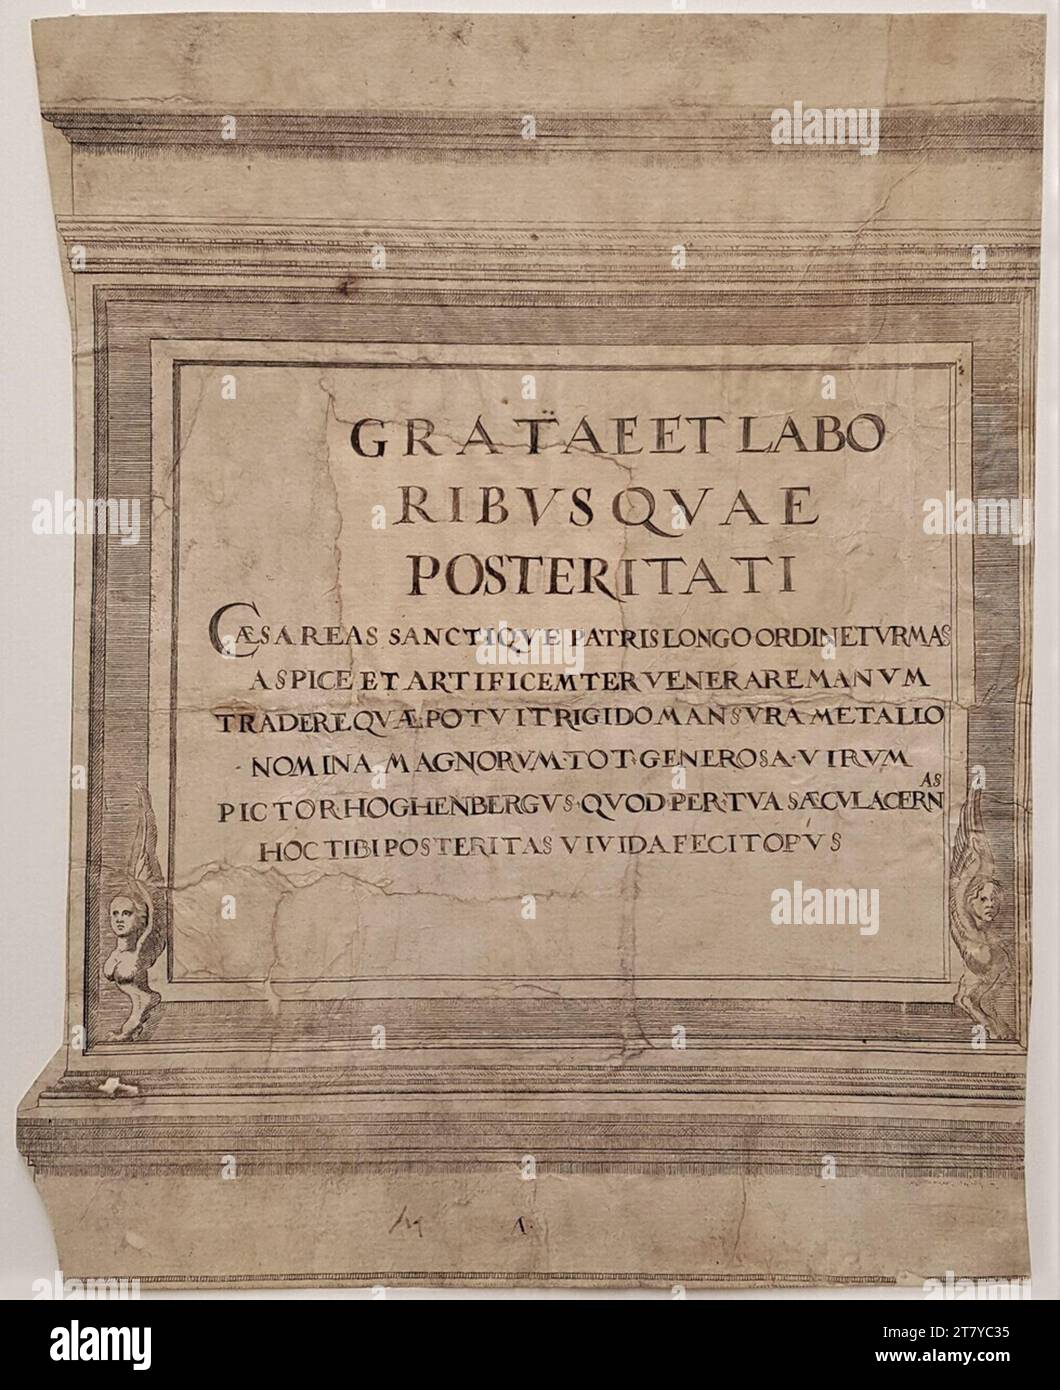 GRATAE ET LABO
RIBVSQVAE
POSTERITATI
CÆSAREAS SANCTIQVE PATRIS LONGO ORDINE TVRMAS
ASPICE ET ARTIFICEM TER VENERARE MANVM
TRADERE QVÆ POTVIT RIGIDO MANSVRA METALLO
NOMINA MAGNORVM·TOT·GENEROSA·VIRVM
AS
PICTOR HOGHENBERGVS·QVOD·PER·TVA SÆCVLA CERN
HOC TIBI POSTERITAS VIVIDA FECIT OPVS
A·
alamy
alamy
alamy
alamy
alamy
alamy
alamy
a a a a a a a a a a a
alamy
Image ID: 2T7YC35
www.alamy.com